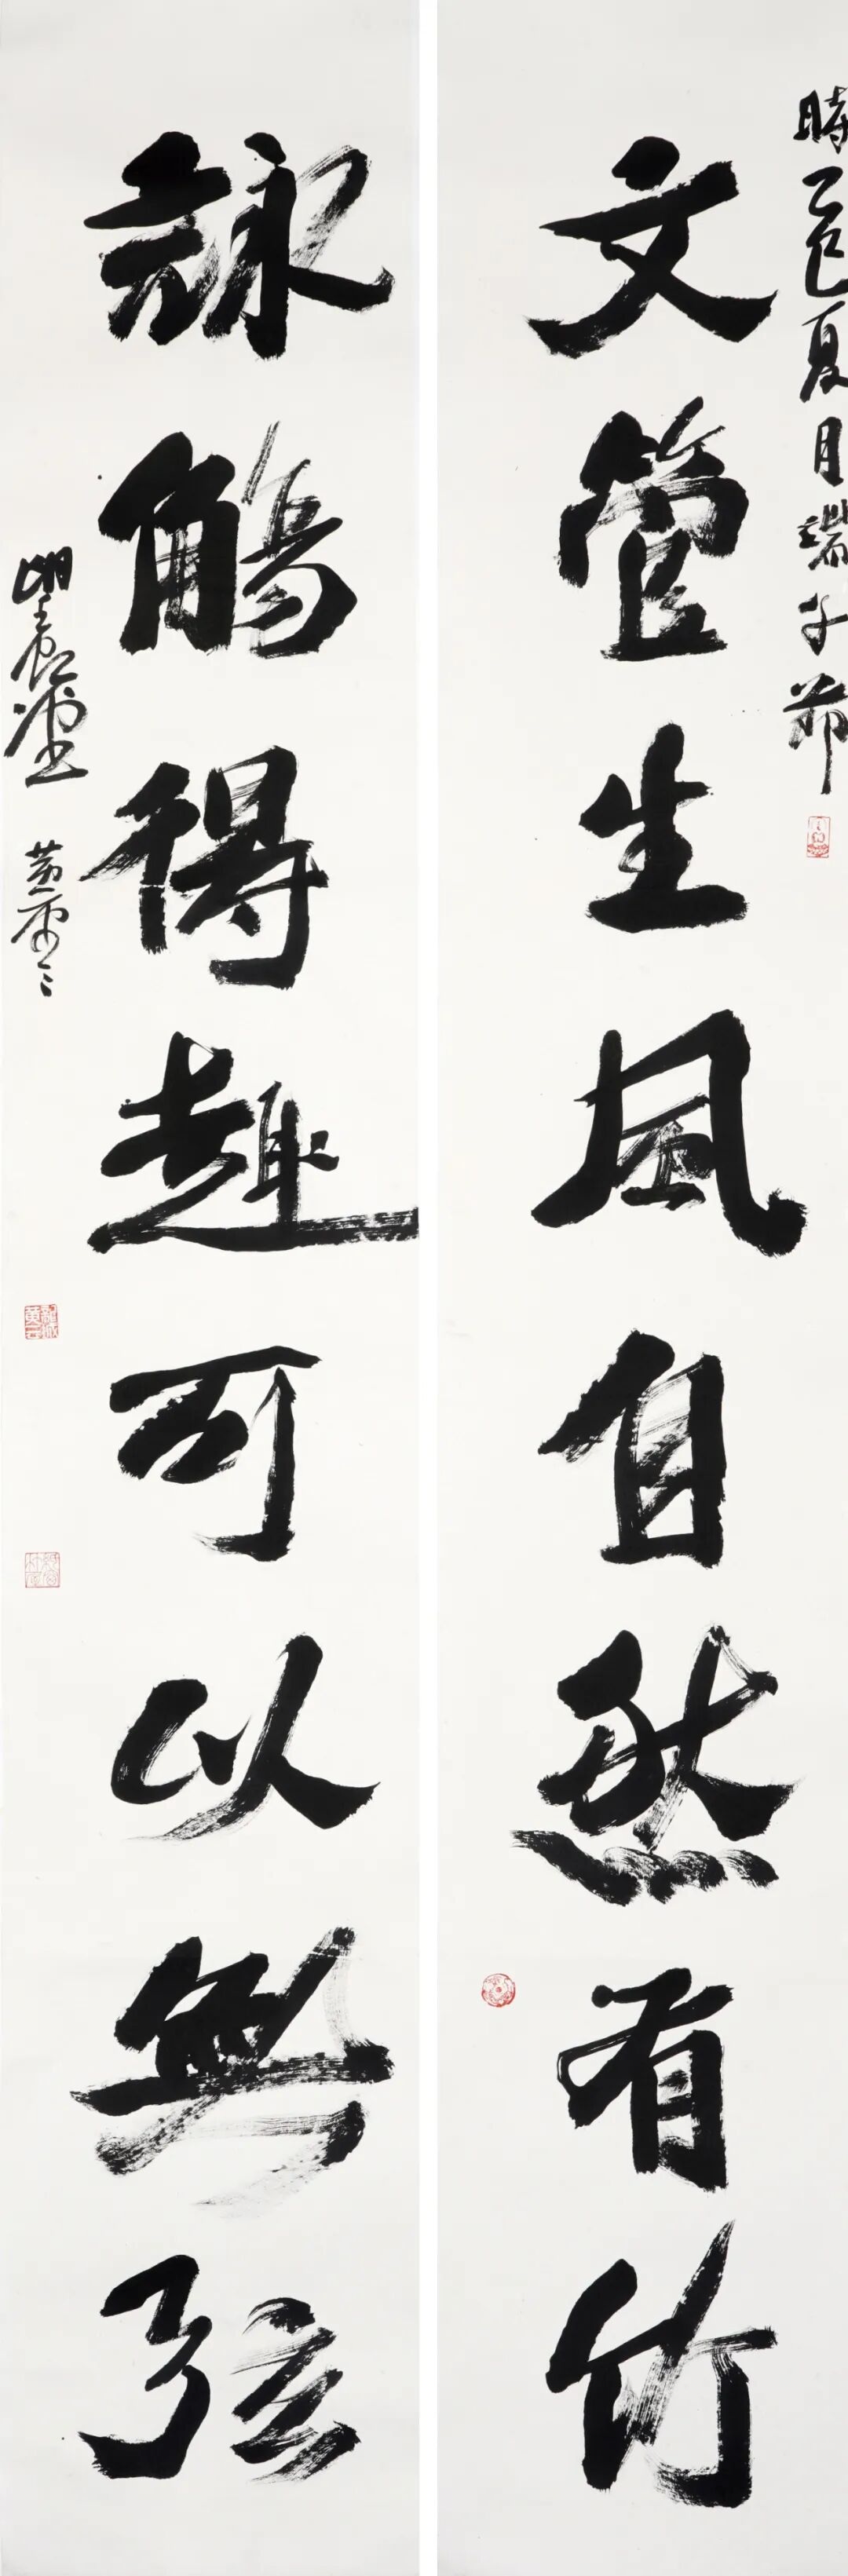 時乙巳夏月端午節
文管生風自然有竹
詠觴得趣可以無弦
黃